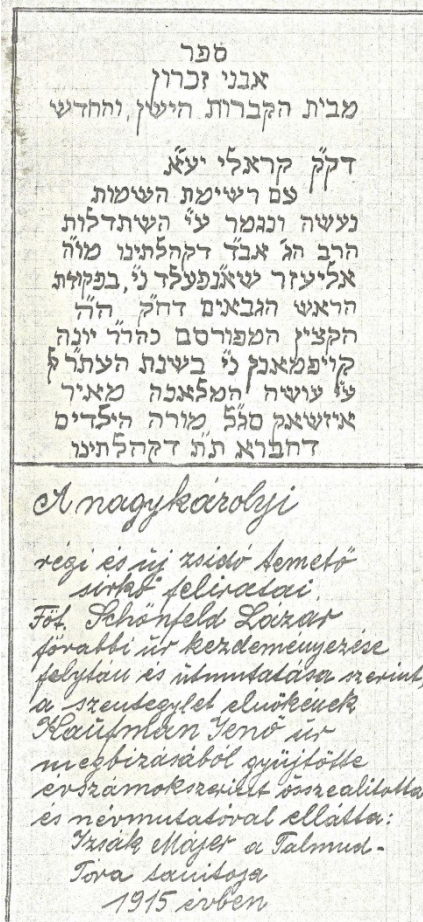 ספר
אבני זכרון
מבית הקברות הישן, והחדש
דק״ק קראלי יע״א
עם רשימת השמות
נעשה ונגמר ע״י השתדלות
הרב הג׳ אב״ד דקהלתינו מו״ה
אליעזר שאנפעלד נ״י, בפקודת
הראש הגבאים דח״ק ה״ה
הקצין המפורסם כהר״ר יונה
קויפמאנן נ״י בשנת העתר״ל
ע״י עושה המלאכה מאיר
איזשאק סג״ל מורה הילדים
דחברא ת״ת דקהלתינו
A nagykárolyi
régi és új zsidó temető
sirkő feliratai.
Főt. Schönfeld Lázár
főrabbi úr kezdeményezése
folytán és útmutatása szerint,
a szentegylet elnökének
Kaufman Jenő úr
megbizásából gyüjtötte
évszámokszerint összealitotta
és névmutatóval ellátta:
Izsák Májer a Talmud-
Tóra tanitója
1915 évben